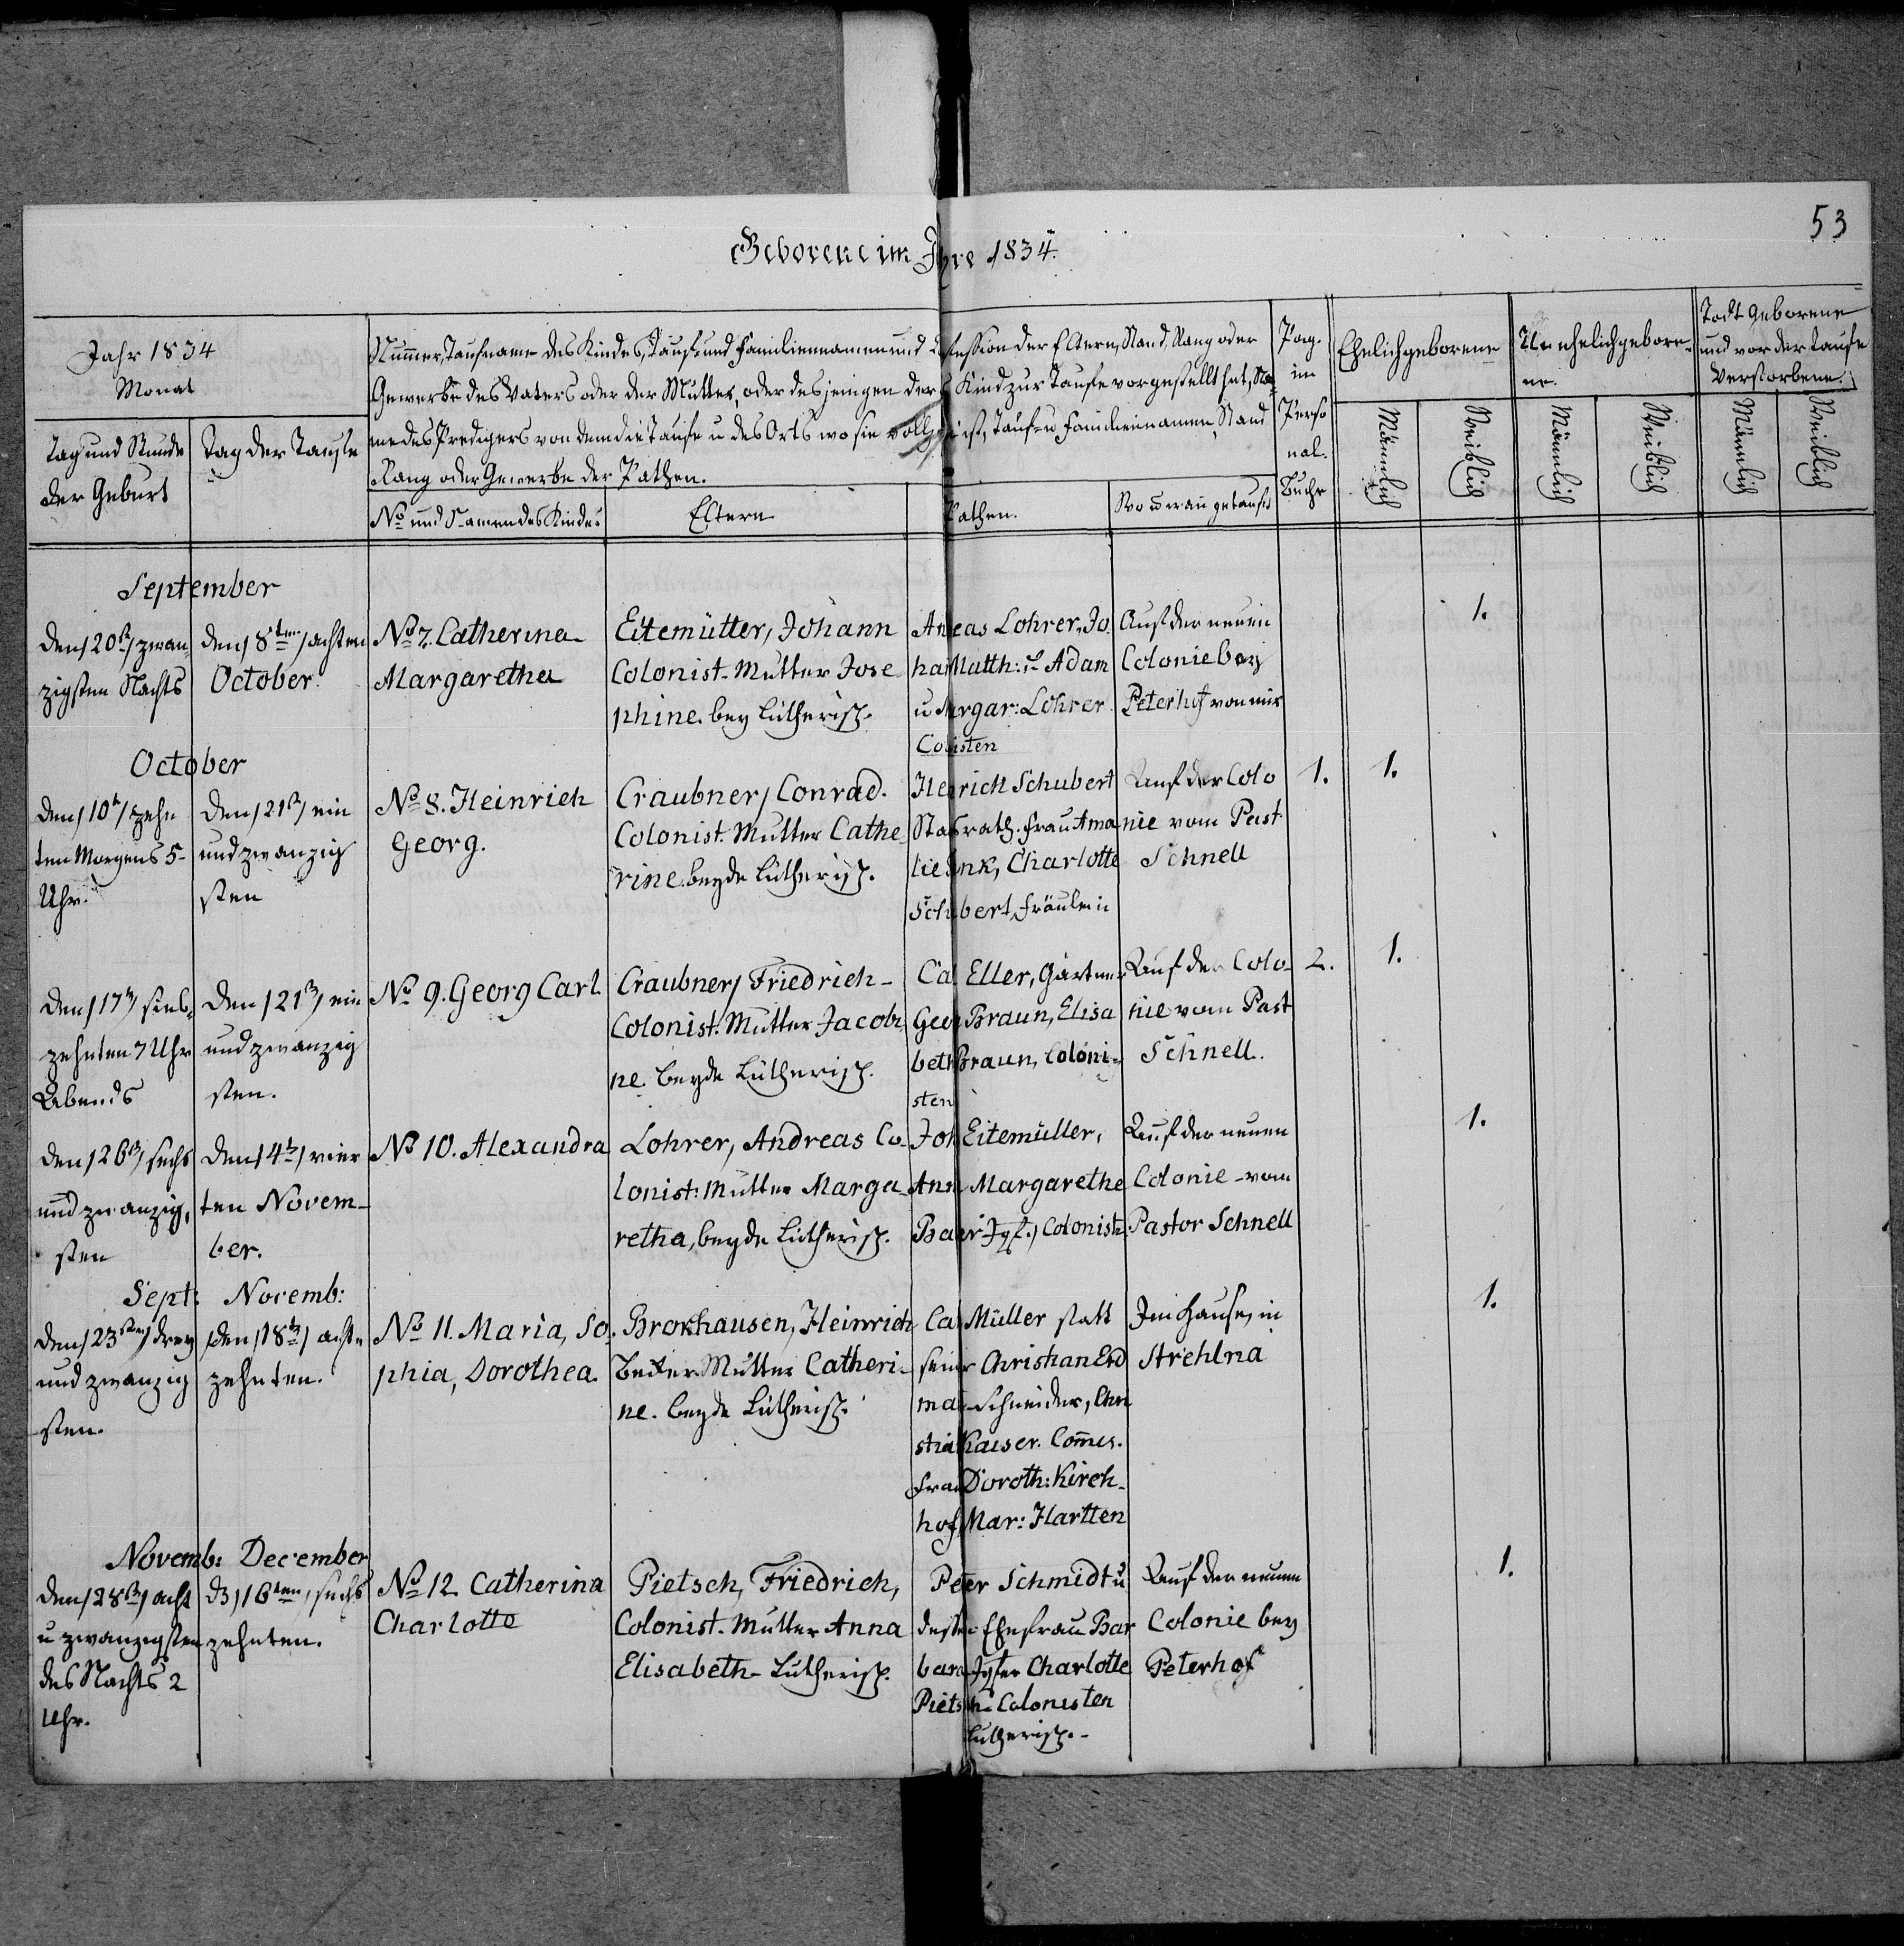 53
Geborene im Jahre 1834.
Jahr 1834
Monat
Tag und Stunde
der Geburt
Tag der Taufe
Nummer, Taufname des Kindes, Tauf- und Familiennamen und Confession der Eltern, Stand, Rang oder
Gewerbe des Vaters oder der Mutter, oder desjenigen der das Kind zur Taufe vorgestellt hat, Na-
me des Predigers von dem die Taufe u des Orts wo sie vollzogen ist, Tauf- u Familiennamen, Stand
Rang oder Gewerbe der Pathen.
No und Namen des Kindes
Eltern
Pathen.
Wo u wan getauft
Pag.
im
Perso
nal.
Buche
Ehelichgeborene
Männlich
Weiblich
Unehelichgebore-
ne.
Männlich
Weiblich
Todt Geborene
und vor der Taufe
Verstorbene.
Männlich
Weiblich
September
den 20 zwan-
zigsten Nachts
den 8ten achten
October
No 7. Catherina
Margaretha
Eitemütter, Johann
Colonist. Mutter Jose
phine. bey Lutherisch.
Andreas Lohrer, Jo.
Matth: Adam
u Margar: Lohrer
Colonisten
Auf der neuen
Colonie bey
Peterhof von mir
1.
October
den 10 zehn
ten Morgens 5
Uhr.
den 21 ein
und zwanzig
sten
No 8. Heinrich
Georg.
Craubner, Conrad.
Colonist. Mutter Cathe
rine. beyde Lutherisch.
Heinrich Schubert
Staatsrath. Frau Ama
lie Charlotte
Schubert, Fräulein
Auf der Colo
nie vom Past
Schnell
1.
1.
den 17 sieb-
zehnten 7 Uhr
Abends
den 21 ein
und zwanzig
sten.
No 9. Georg Carl
Craubner, Friedrich
Colonist. Mutter Jacobi
ne. beyde Lutherisch.
Carl Eller, Gärtner
Georg Braun, Elisa
beth Braun, Coloni-
sten
Auf der Colo-
nie vom Past
Schnell.
2.
1.
den 26 sechs
und zwanzig,
sten
den 4 vier
ten Novem-
ber.
No 10. Alexandra
Lohrer, Andreas Co-
lonist: Mutter Marga
retha, beyde Lutherisch.
Joh Eitemüller,
Anna Margarethe
Baer Jgf., Colonist
Auf der neuen
Colonie - vom
Pastor Schnell
1.
Sept: Novemb:
den 23sten drey
und zwanzig
sten.
den 18 acht-
zehnten.
No 11. Maria, So.
phia, Dorothea.
Brokhausen, Heinrich
Mutter Catheri-
ne. beyde Lutherisch.
Carl Müller statt
seiner Christian Erd
man Schneider, Chri
stian Kaiser. Comis.
Frau Doroth: Kirch-
hof, Mar: Hartten
Im Hause, in
Strehlna
1.
Novemb: December
den 28 acht
u zwanzigsten
des Nachts 2
Uhr.
D 16ten, sechs
zehnten.
No 12. Catherina
Charlotte
Pietsch, Friedrich,
Colonist. Mutter Anna
Elisabeth - Lutherisch.
Peter Schmidt u
dessen Ehefrau Bar
bara Jgfer Charlotte
Pietsch - Colonisten
Lutherisch. -
Auf der neuen
Colonie bey
Peterhof
1.